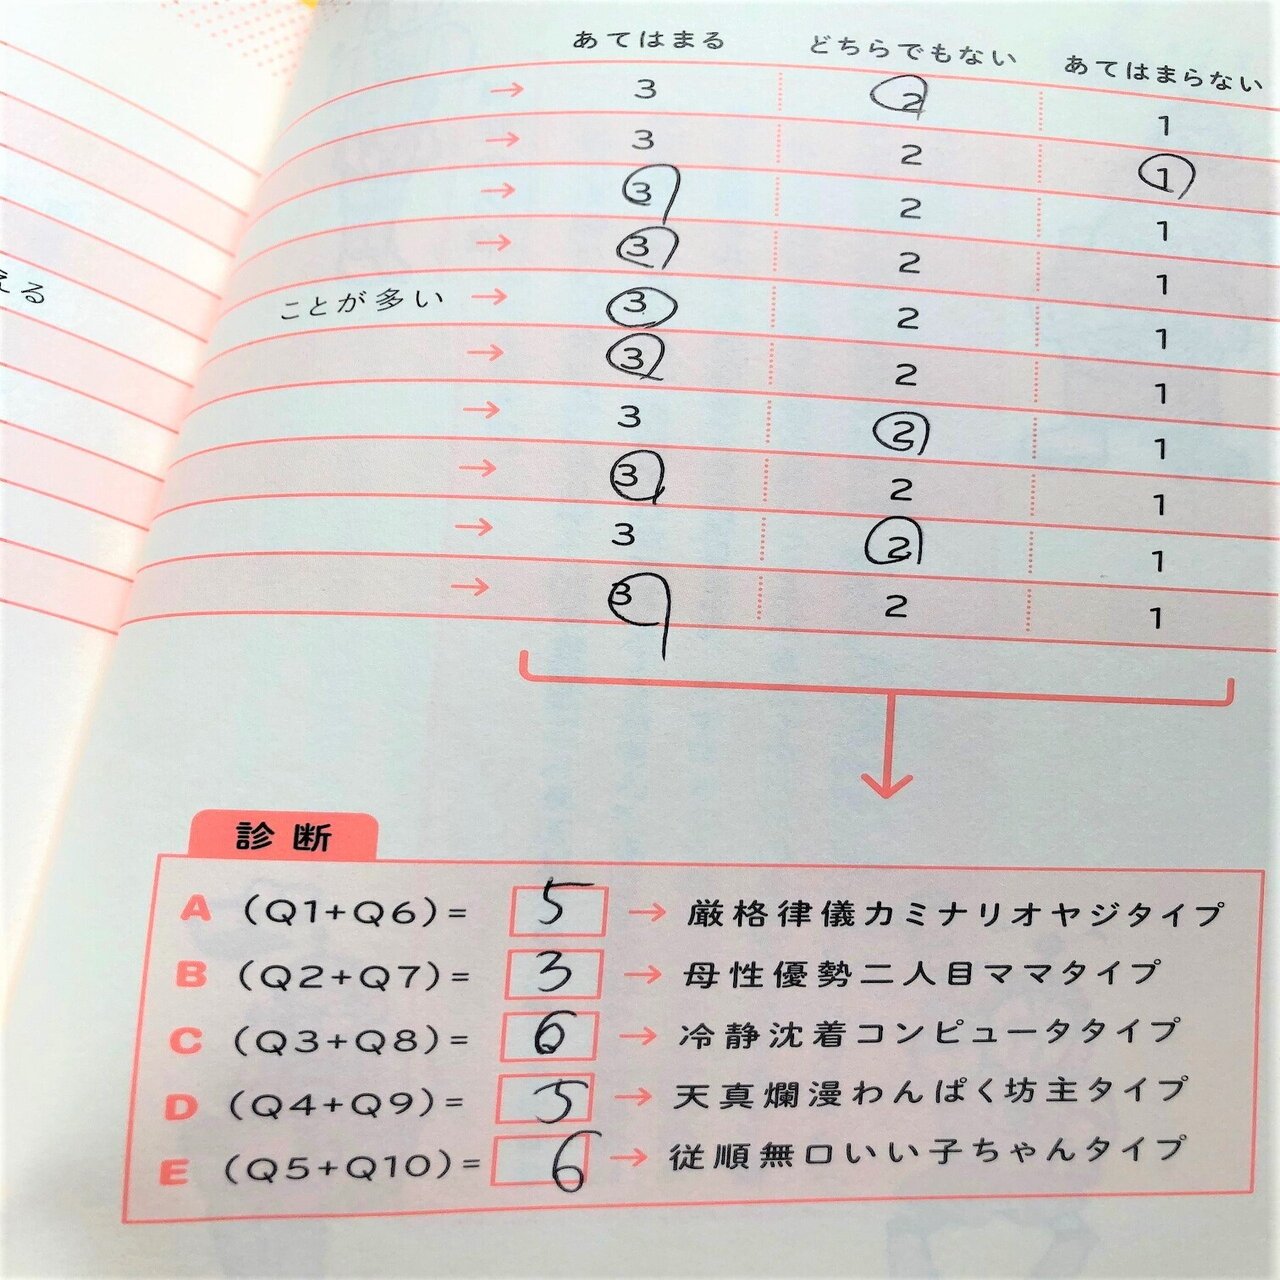 あてはまる どちらでもない あてはまらない
→ 3 2 1
→ 3 2 1
→ 3 2 1
→ 3 2 1
える
ことが多い → 3 2 1
→ 3 2 1
→ 3 2 1
→ 3 2 1
→ 3 2 1
→ 3 2 1
診断
A (Q1+Q6)= 5 → 厳格律儀カミナリオヤジタイプ
B (Q2+Q7)= 3 → 母性優勢二人目ママタイプ
C (Q3+Q8)= 6 → 冷静沈着コンピュータタイプ
D (Q4+Q9)= 5 → 天真爛漫わんぱく坊主タイプ
E (Q5+Q10)= 6 → 従順無口いい子ちゃんタイプ